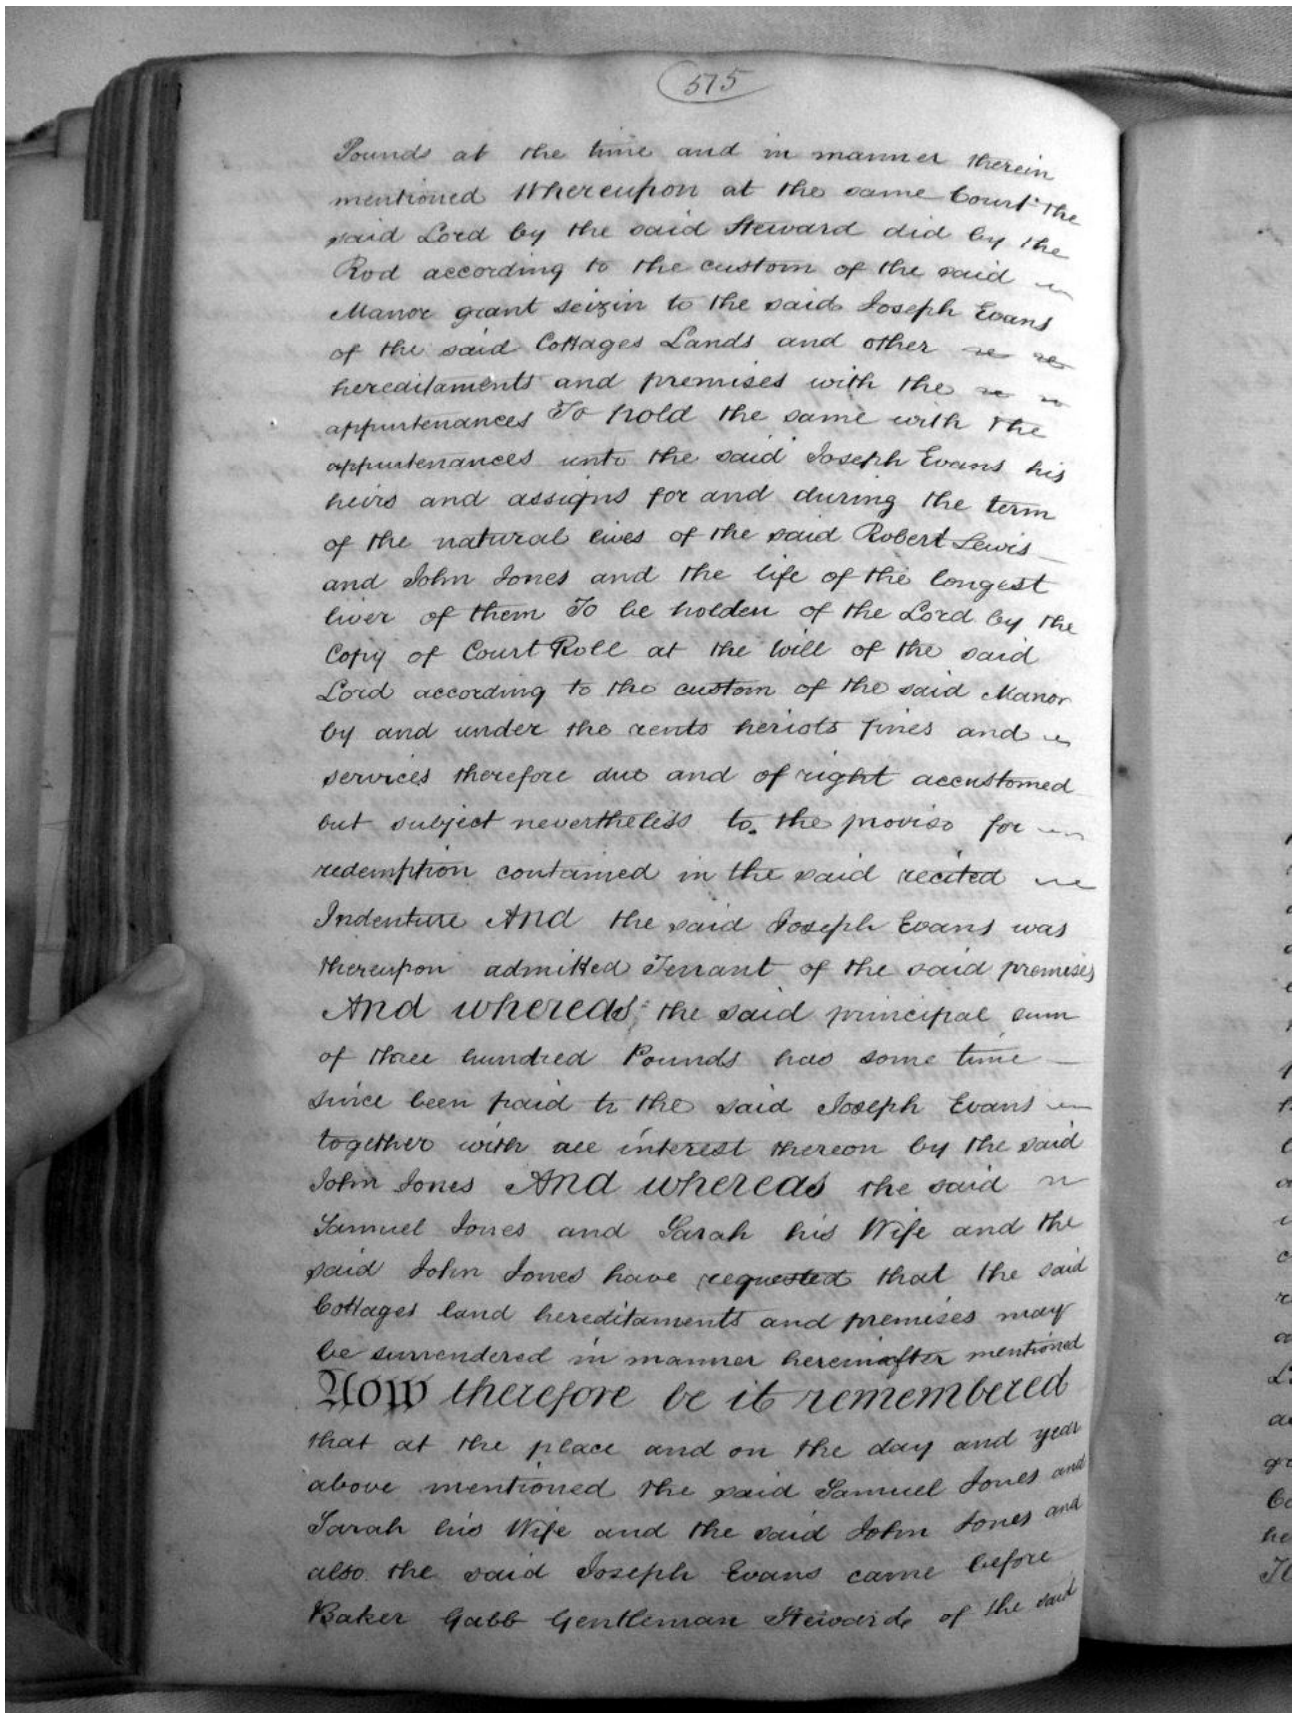 515
Pounds at the time and in manner therein
mentioned Whereupon at the same Court the
said Lord by the said Steward did by the
Rod according to the custom of the said
Manor grant seizin to the said Joseph Evans
of the said Cottages Lands and other
hereditaments and premises with the
appurtenances To hold the same with the
appurtenances unto the said Joseph Evans his
heirs and assigns for and during the term
of the natural lives of the said Robert Lewis
and John Jones and the life of the longest
liver of them To be holden of the Lord by the
Copy of Court Roll at the will of the said
Lord according to the custom of the said Manor
by and under the rents heriots fines and
services therefore due and of right accustomed
but subject nevertheless to the proviso for
redemption contained in the said recited
Indenture And the said Joseph Evans was
thereupon admitted Tenant of the said premises
And whereas the said principal sum
of three hundred Pounds has some time
since been paid to the said Joseph Evans
together with all interest thereon by the said
John Jones And whereas the said
Samuel Jones and Sarah his Wife and the
said John Jones have requested that the said
Cottages land hereditaments and premises may
be surrendered in manner hereinafter mentioned
Now therefore be it remembered
that at the place and on the day and year
above mentioned the said Samuel Jones and
Sarah his Wife and the said John Jones and
also the said Joseph Evans came before
Baker Gabb Gentleman Steward of the said